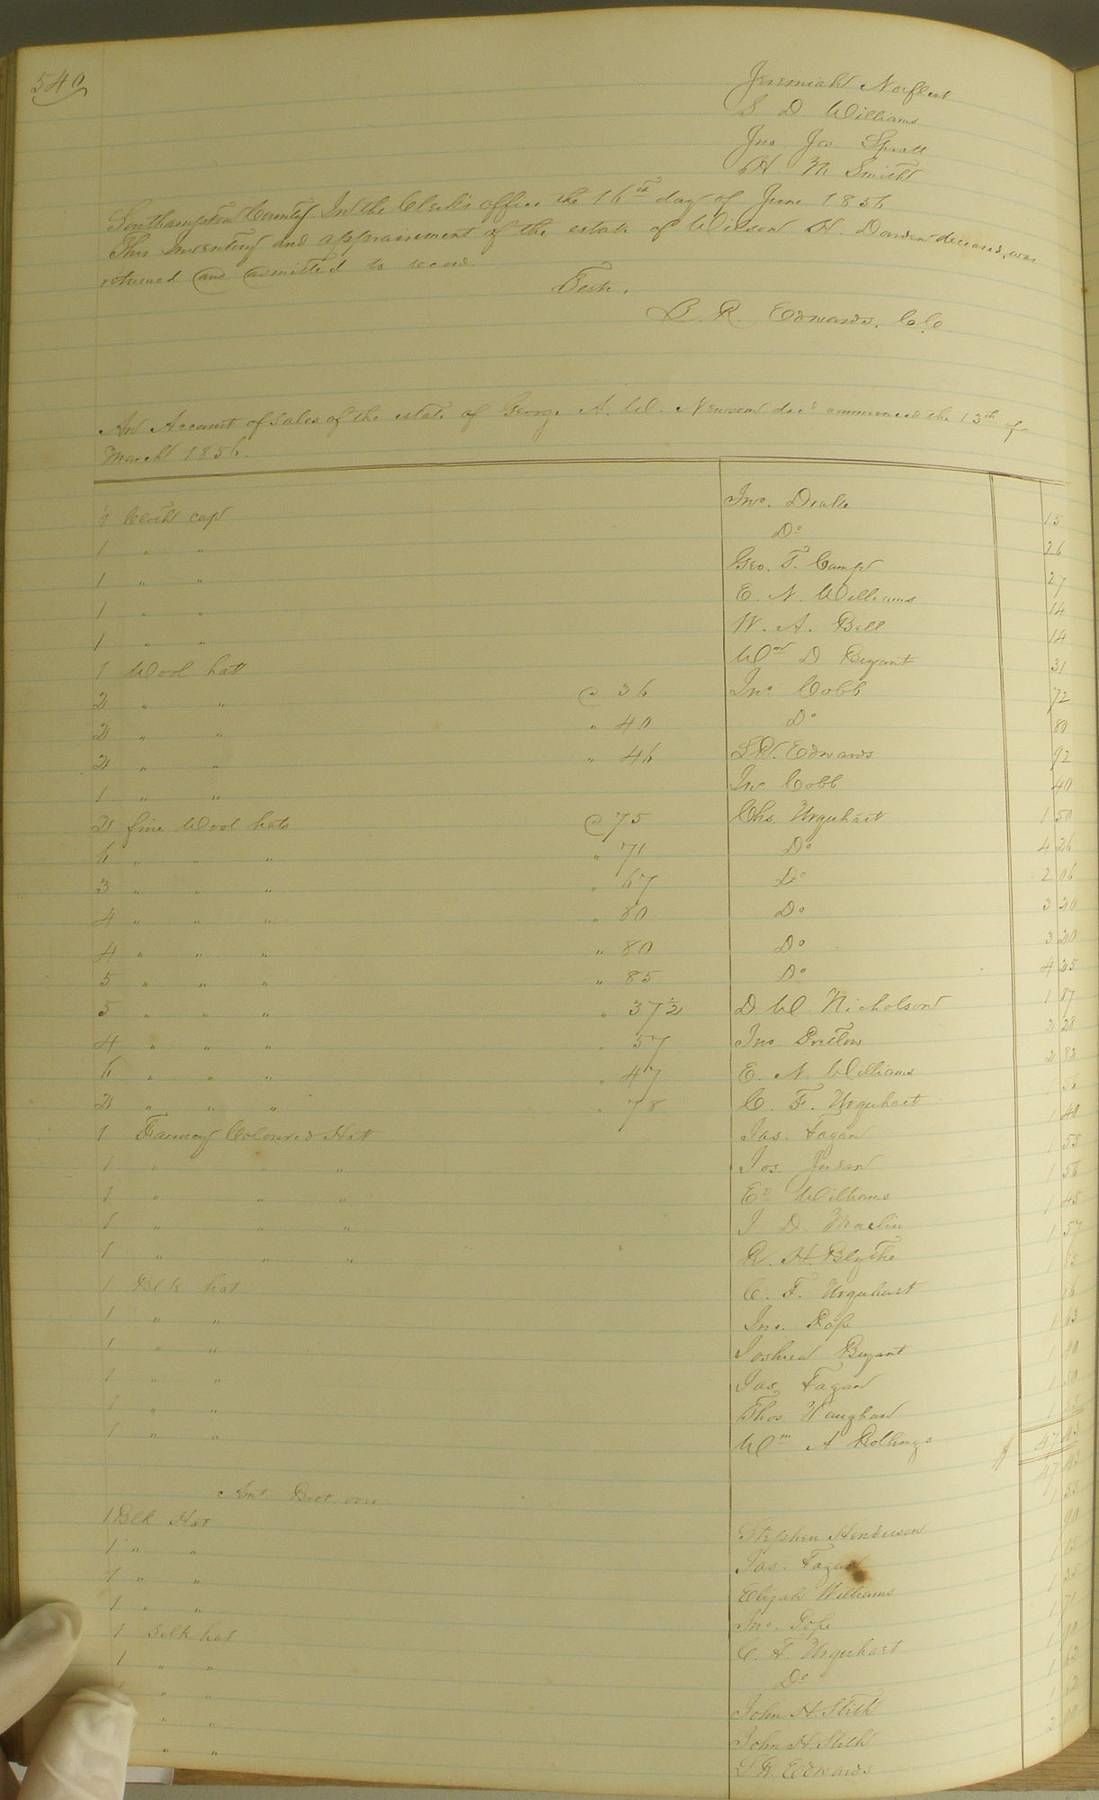 540
Jeremiah Norfleet
S D Williams
Jno Jos Spratt
H M Smith
Southampton County In the Clerk's office the 16th day of June 1856
This Inventory and appraisement of the estate of Wilson H. Darden deceased, was
returned and admitted to record.
Teste.
L. R. Edwards. C.C
An Account of Sales of the estate of George A. W. Newsom decd commenced the 13th of
March 1856.
1 Cloth cap Jno. Drake 15
1 " " Do 26
1 " " Geo. T. Camp 27
1 " " E. N. Williams 14
1 " " W. A. Bell 14
1 Wool hat Wm D Bryant 31
2 " " @ 36 Jno Cobb 72
2 " " " 40 Do 80
2 " " " 46 L.R. Edwards 92
1 " " Jno Cobb 40
2 fine Wool hats @ 75 Chs. Urquhart 1 50
6 " " " " 71 Do 4 26
3 " " " " 67 Do 2 06
4 " " " " 80 Do 3 20
4 " " " " 80 Do 3 20
5 " " " " 85 Do 4 25
5 " " " " 37 1/2 D. W Nicholson 1 87
4 " " " " 57 Jno Pretlow 2 28
6 " " " " 47 E. N. Williams 2 82
2 " " " " 78 C. F. Urquhart
1 Coloured Hat Jas. Fagan 1 40
1 " " " Jos. 1 55
1 " " " Ed Williams 1 56
1 " " " J D 1 45
1 " " " R. H. Blythe 1 57
1 Blk hat C. F. Urquhart
1 " " Jno. Pope 16
1 " " Joshua Bryant 1 63
1 " " Jas Fagan 1 40
1 " " Thos Vaughan 1 50
1 " " Wm A Rollings 1
$ 47
Amt Brot over 47
1 Blk Hat Stephen Henderson
1 " " Jas. Fagan 90
1 " " Elijah Williams 1
1 " " Jno. Pope 1 25
1 Silk hat C. F. Urquhart 1 71
1 " " Do 1
" " John H. Stith 1 62
" " John H. Stith 1
" " L R. Edwards 2 00